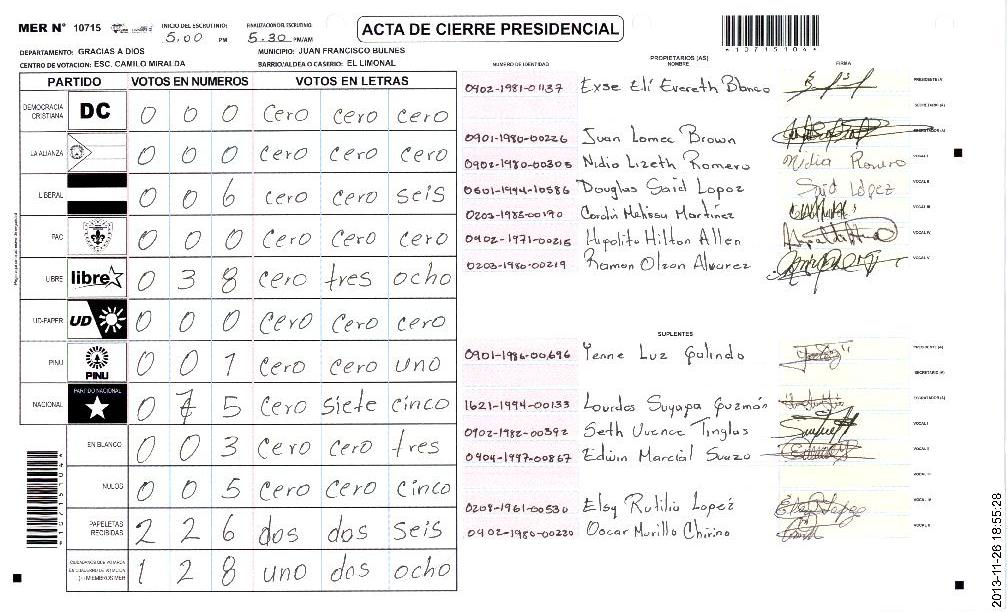 MER N° 10715
INICIO DEL ESCRUTINIO: 5.00 PM
FINALIZACION DEL ESCRUTINIO: 5.30 PM/AM
ACTA DE CIERRE PRESIDENCIAL
107151044
DEPARTAMENTO: GRACIAS A DIOS
MUNICIPIO: JUAN FRANCISCO BULNES
CENTRO DE VOTACION: ESC. CAMILO MIRALDA
BARRIO/ALDEA O CASERIO: EL LIMONAL
PARTIDO VOTOS EN NUMEROS VOTOS EN LETRAS
DEMOCRACIA CRISTIANA DC 0 0 0 cero cero cero
LA ALIANZA 0 0 0 cero cero cero
LIBERAL 0 0 6 cero cero seis
PAC 0 0 0 cero cero cero
LIBRE libre 0 3 8 cero tres ocho
UD-FAPER UD 0 0 0 cero cero cero
PINU PINU 0 0 1 cero cero uno
NACIONAL PARTIDO NACIONAL 0 7 5 cero siete cinco
EN BLANCO 0 0 3 cero cero tres
NULOS 0 0 5 cero cero cinco
PAPELETAS RECIBIDAS 2 2 6 dos dos seis
CIUDADANOS QUE VOTARON EN CUADERNO DE VOTACION (+) MIEMBROS MER 1 2 8 uno dos ocho
NUMERO DE IDENTIDAD PROPIETARIOS (AS) NOMBRE FIRMA
0902-1981-01137 Exse Elí Evereth Blanco PRESIDENTE(A)
SECRETARIO(A)
0901-1980-00226 Juan Lomec Brown ESCRUTADOR(A)
0902-1980-00305 Nidio Lizeth Romero Nidia Romero VOCAL I
0501-1994-10586 Douglas Said Lopez Said López VOCAL II
0203-1985-00190 Carolin Melissa Martínez VOCAL III
0402-1971-00215 Hipolito Hilton Allen VOCAL IV
0203-1980-00219 Ramon Olzon Alvarez VOCAL V
SUPLENTES
0901-1986-00696 Yenne Luz Galindo PRESIDENTE(A)
SECRETARIO(A)
1621-1994-00133 Lourdes Suyapa Guzmón ESCRUTADOR(A)
0902-1982-00392 Seth Tinglas VOCAL I
0904-1997-00867 Edwin Marcial Suazo VOCAL II
VOCAL III
0208-1961-00530 Elsy Rutilio Lopez VOCAL IV
0402-1980-00230 Oscar Murillo Chirino VOCAL V
107151044
2013-11-26 18:55:28